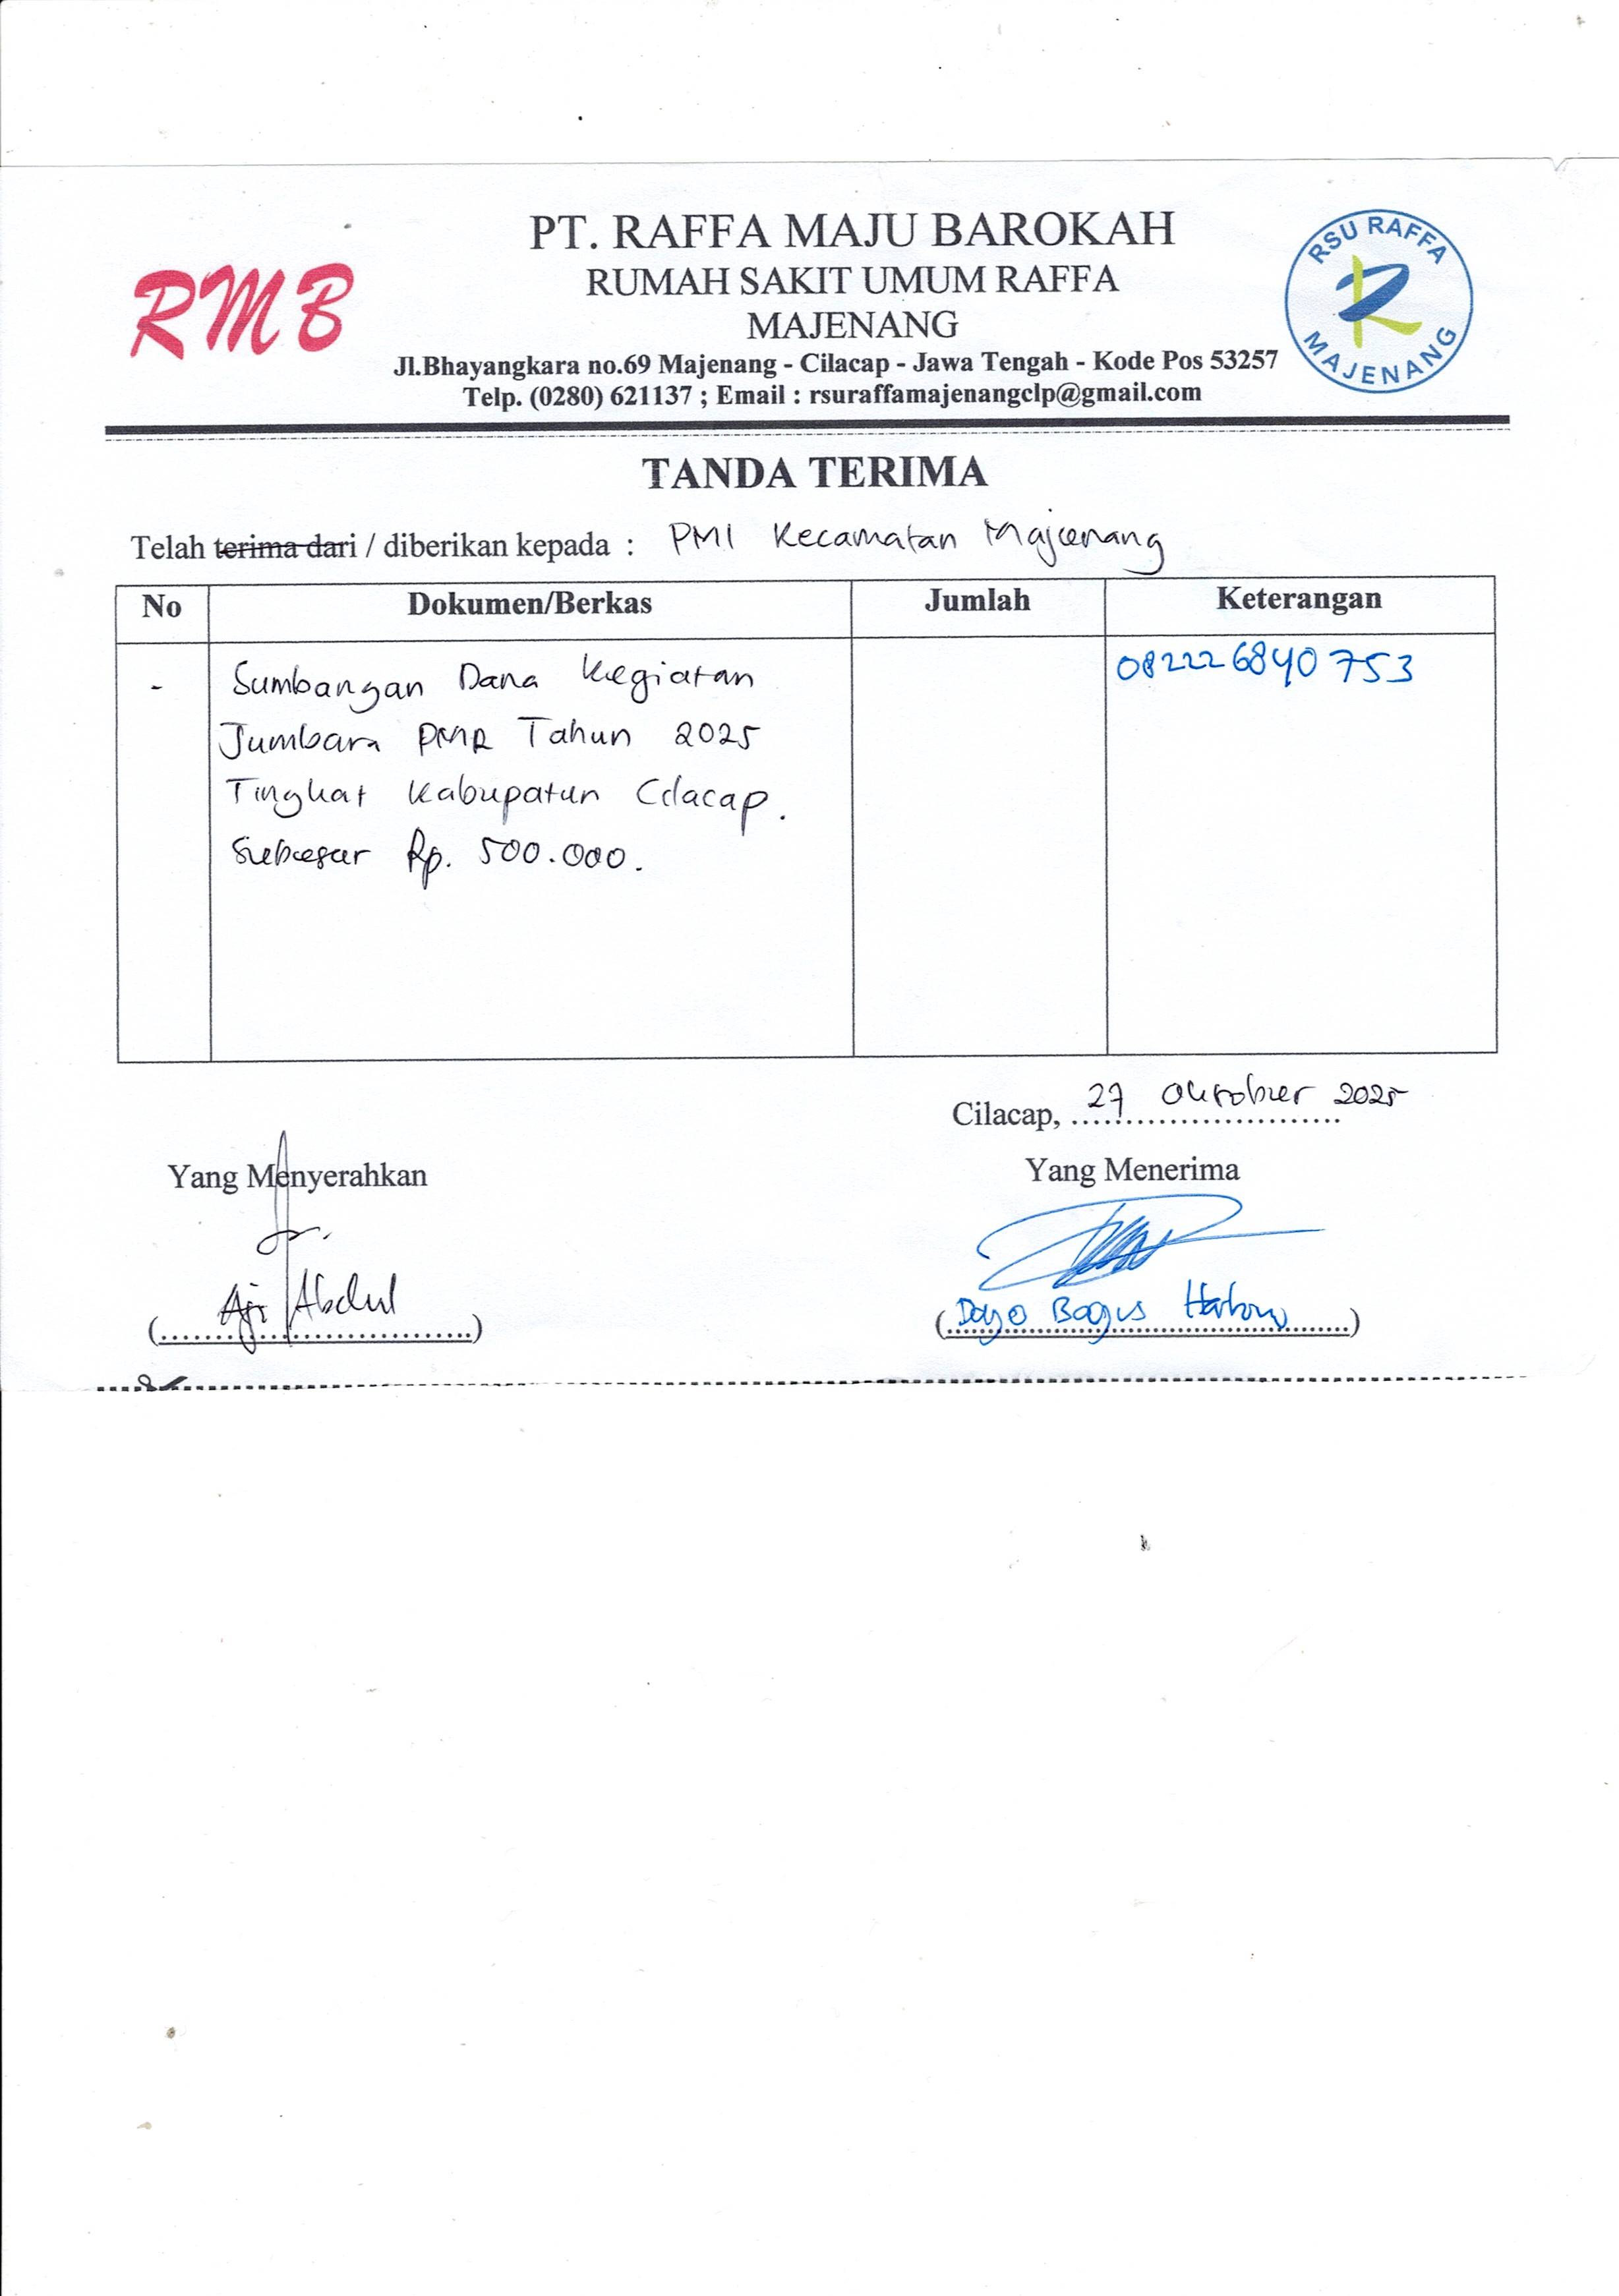 RMB
PT. RAFFA MAJU BAROKAH
RUMAH SAKIT UMUM RAFFA
MAJENANG
Jl.Bhayangkara no.69 Majenang - Cilacap - Jawa Tengah - Kode Pos 53257
Telp. (0280) 621137 ; Email : rsuraffamajenangclp@gmail.com
RSU RAFFA
MAJENANG
TANDA TERIMA
Telah terima dari / diberikan kepada : PMI Kecamatan Majenang
No Dokumen/Berkas Jumlah Keterangan
- Sumbangan Dana Kegiatan 082226840753
Jumbara PMR Tahun 2025
Tingkat Kabupaten Cilacap.
Sebesar Rp. 500.000.
Cilacap, 27 Oktober 2025
Yang Menyerahkan Yang Menerima
(Aji Abdul) (Bagus)